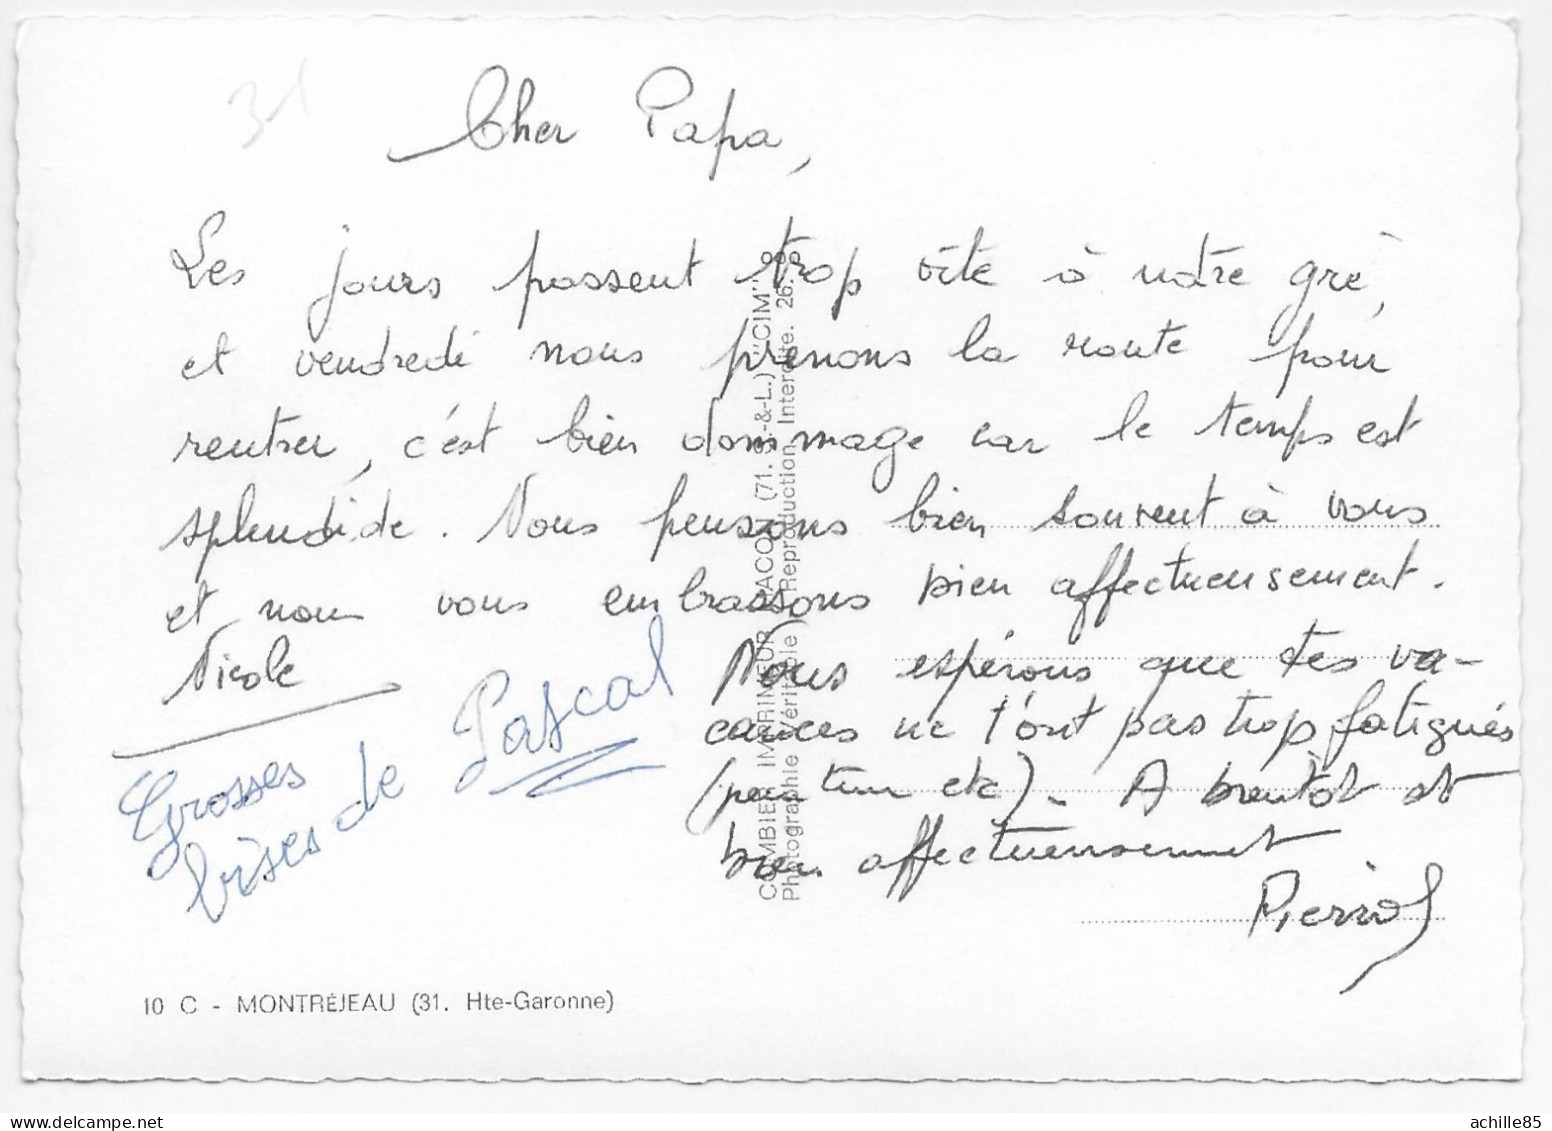 31
Cher Papa,
Les jours passent trop vite à notre gré,
et vendredi nous prenons la route pour
rentrer, c'est bien dommage car le temps est
splendide. Nous pensons bien souvent à vous
et nous vous embrassons bien affectueusement.
Nicole
Grosses
bises de Pascal
Nous espérons que tes va-
cances ne t'ont pas trop fatigués
(peinture etc). A bientôt et
bien affectueusement
Pierrot
COMBIER IMPRIMEUR MACON (71. S.-&-L.) "CIM"
Photographie Véritable Reproduction Interdite. 26.
10 C - MONTRÉJEAU (31. Hte-Garonne)
delcampe.net
achille85